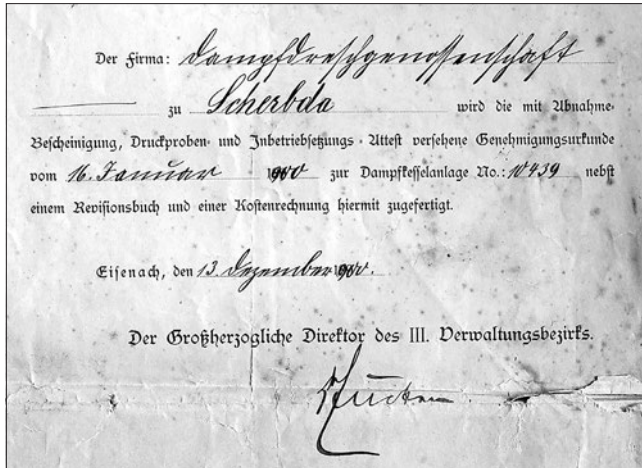 Der Firma: Dampfdreschgenossenschaft
zu Scherbda wird die mit Abnahme-
Bescheinigung, Druckproben- und Inbetriebsetzungs-Attest versehene Genehmigungsurkunde
vom 16. Januar 1900 zur Dampfkesselanlage No.: 10439 nebst
einem Revisionsbuch und einer Kostenrechnung hiermit zugefertigt.
Eisenach, den 13. Dezember 1900.
Der Großherzogliche Direktor des III. Verwaltungsbezirks.